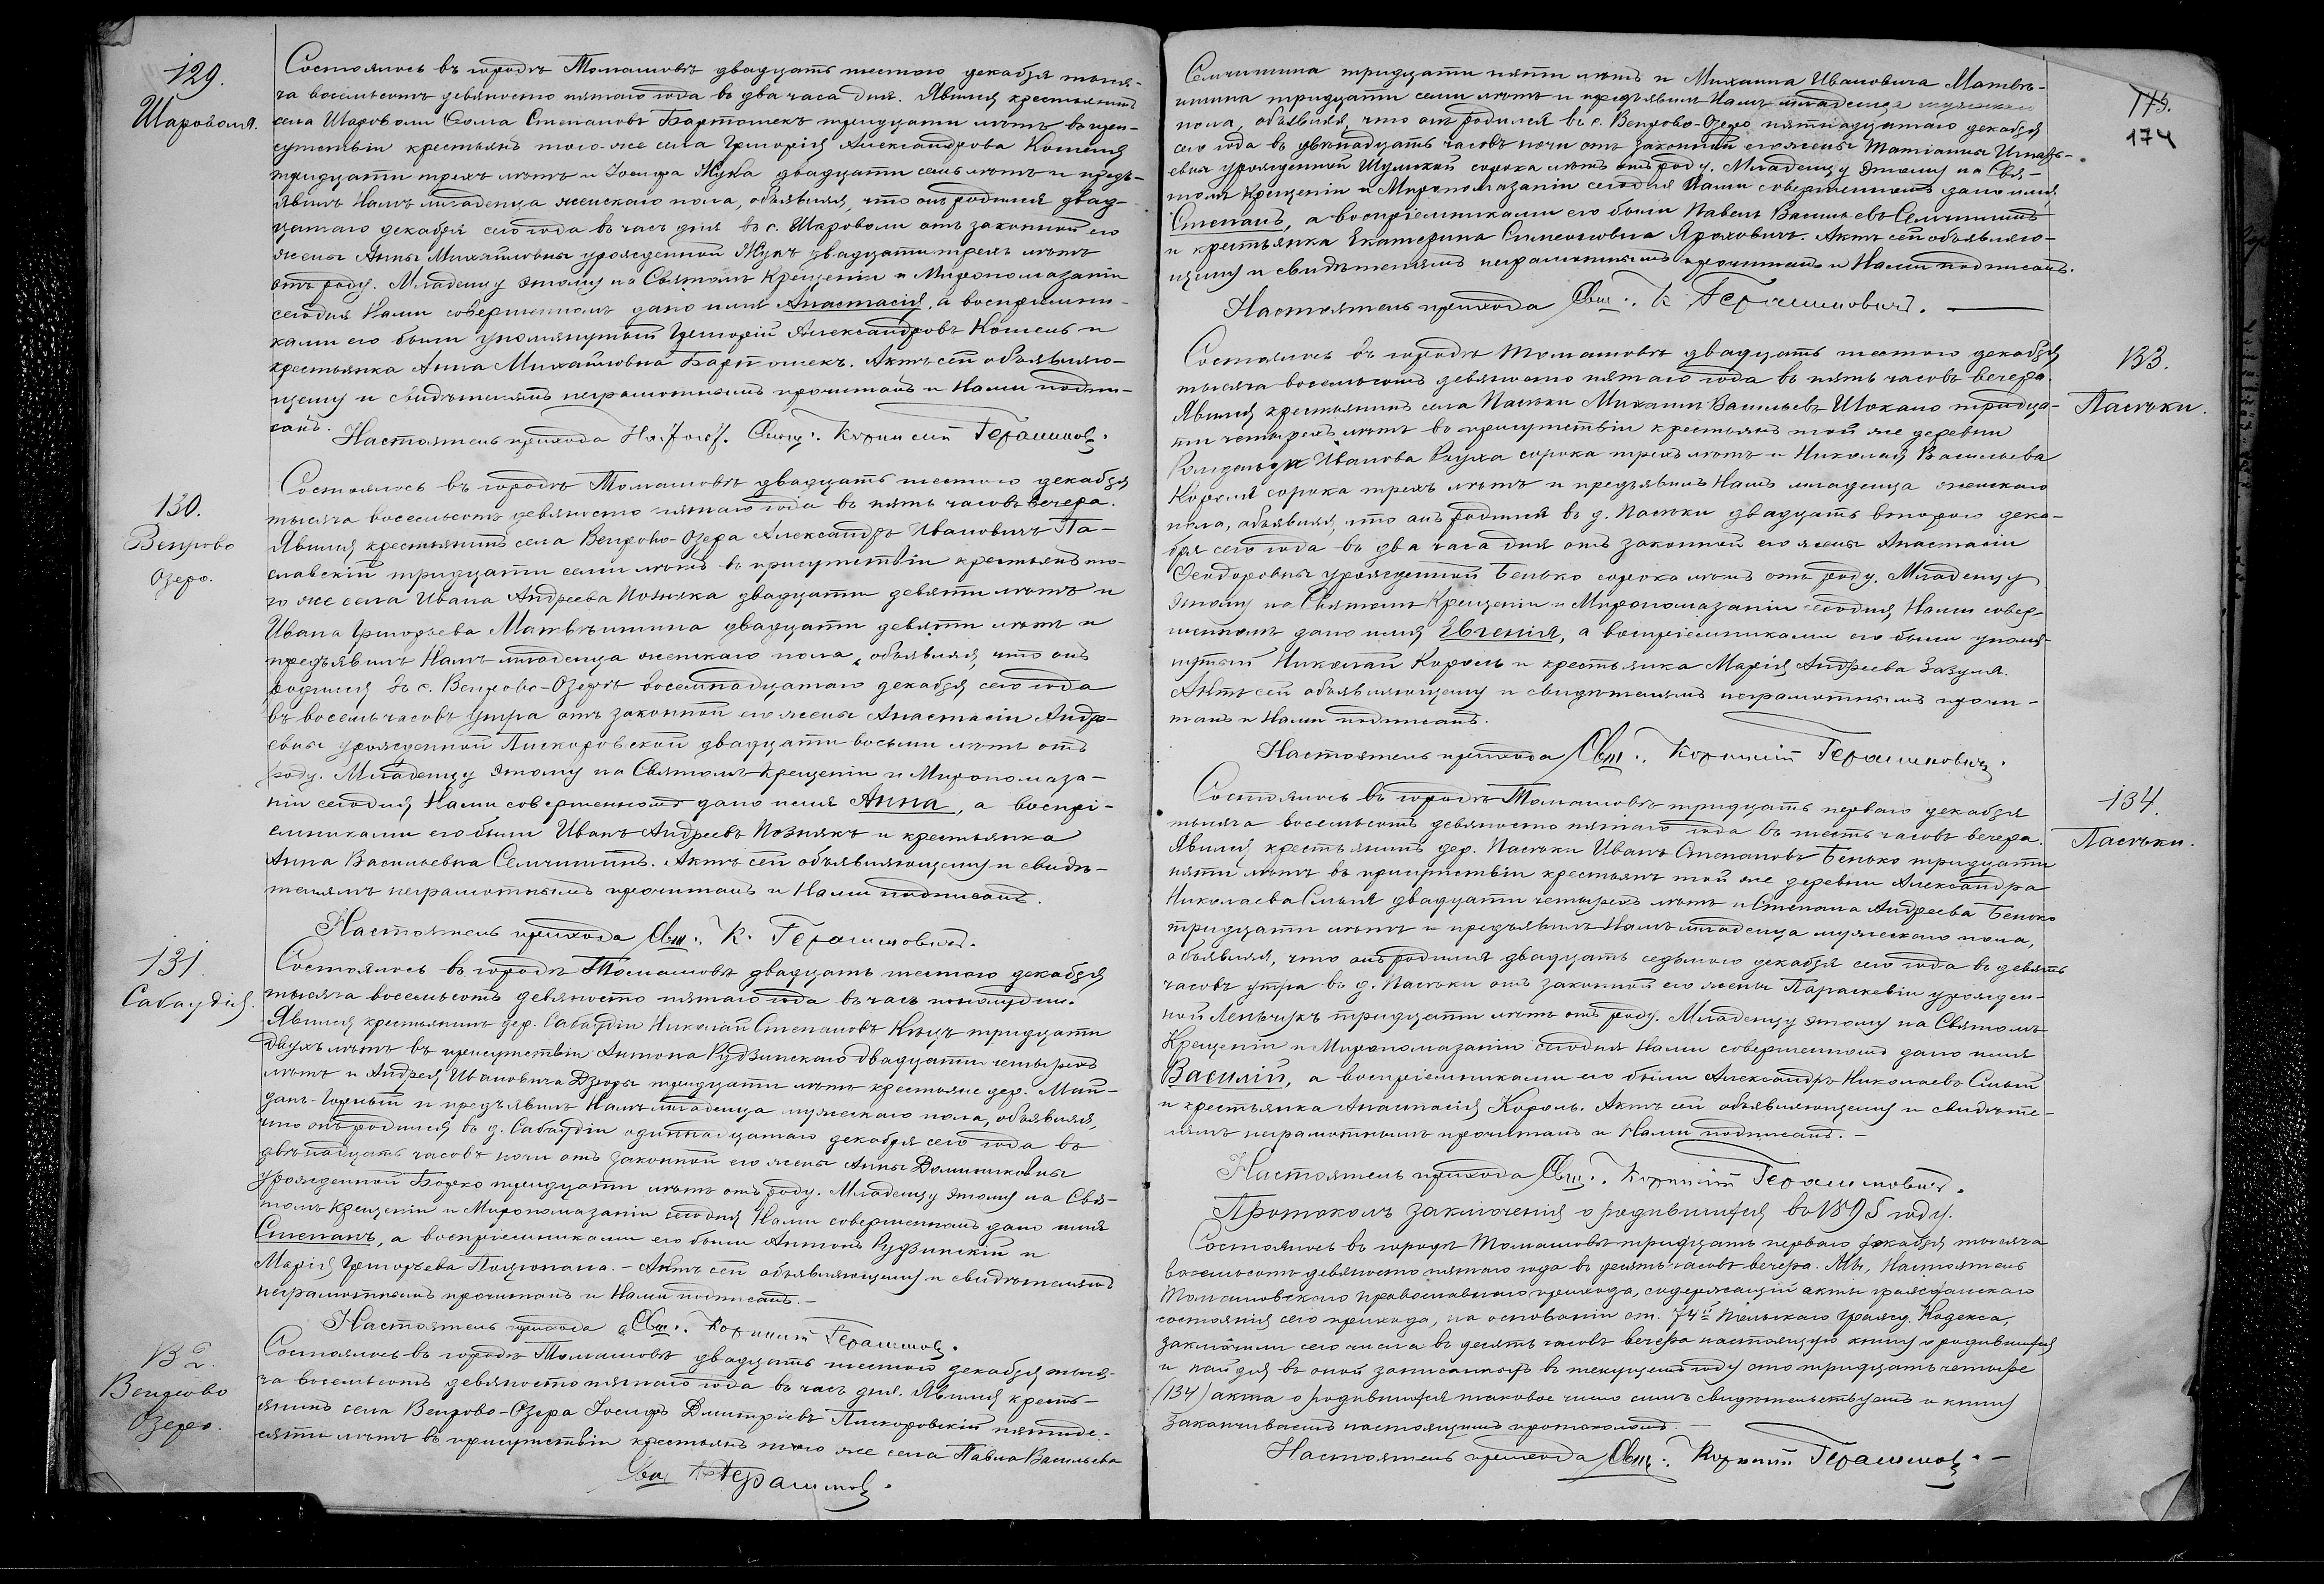 129.
Шароволя.
Состоялось въ городѣ Томашовѣ двадцать шестого декабря тыся-
ча восемьсотъ девяносто пятаго года въ два часа дня. Явился крестьянинъ
села Шароволи Ѳома Степановъ Бартошекъ тридцати лѣтъ въ при-
сутствіи крестьянъ того-же села Григорія Александрова Кошеля
тридцати трехъ лѣтъ и Іосифа Жука двадцати семь лѣтъ и предъ-
явилъ Намъ младенца женскаго пола, объявляя, что онъ родился двад-
цатаго декабря сего года въ часъ дня въ с. Шароволи отъ законной его
жены Анны Михайловны урожденной Жукъ двадцати трехъ лѣтъ
отъ роду. Младенцу этому на Святомъ Крещеніи и Миропомазаніи
сегодня Нами совершенномъ дано имя Анастасія, а воспріемни-
ками его были упомянутый Григорій Александровъ Кошель и
крестьянка Анна Михайловна Бартошекъ. Актъ сей объявляю-
щему и свидѣтелямъ неграмотнымъ прочитанъ и Нами подпи-
санъ.
Настоятель прихода Свящ. Корнилій Герасимов.
130.
Вепрово
Озеро.
Состоялось въ городѣ Томашовѣ двадцать шестого декабря
тысяча восемьсотъ девяносто пятаго года въ пять часовъ вечера.
Явился крестьянинъ села Вепрово-Озера Александръ Ивановичъ Па-
славскій тридцати семи лѣтъ въ присутствіи крестьянъ то-
го же села Ивана Андреева Позняка двадцати девяти лѣтъ и
Ивана Григорьева Матвѣишина двадцати девяти лѣтъ и
предъявилъ Намъ младенца женскаго пола, объявляя, что онъ
родился въ с. Вепрово-Озерѣ восемнадцатаго декабря сего года
въ восемь часовъ утра отъ законной его жены Анастасіи Андре-
евны урожденной Пискоровской двадцати восьми лѣтъ отъ
роду. Младенцу этому на Святомъ Крещеніи и Миропомаза-
ніи сегодня Нами совершенномъ дано имя Анна, а воспрі-
емниками его были Иванъ Андреевъ Познякъ и крестьянка
Анна Васильевна Семчишинъ. Актъ сей объявляющему и свидѣ-
телямъ неграмотнымъ прочитанъ и Нами подписанъ.
Настоятель прихода Свщ. К. Герасимовичъ.
131.
Сабаудія.
Состоялось въ городѣ Томашовѣ двадцать шестого декабря
тысяча восемьсотъ девяносто пятаго года въ часъ пополудни.
Явился крестьянинъ дер. Сабаудіи Николай Степановъ Кнузъ тридцати
двухъ лѣтъ въ присутствіи Антона Рудзинскаго двадцати четырехъ
лѣтъ и Андрея Ивановича Дзюры тридцати лѣтъ крестьяне дер. Май-
данъ-Горный и предъявилъ Намъ младенца мужескаго пола, объявляя,
что онъ родился въ д. Сабаудіи одиннадцатаго декабря сего года въ
двѣнадцать часовъ ночи отъ законной его жены Анны Доминиковны
урожденной Бойко тридцати лѣтъ отъ роду. Младенцу этому на Свя-
томъ Крещеніи и Миропомазаніи сегодня Нами совершенномъ дано имя
Степанъ, а воспріемниками его были Антонъ Рудзинскій и
Марія Григорьева. – Актъ сей объявляющему и свидѣтелямъ
неграмотнымъ прочитанъ и Нами подписанъ. –
Настоятель прихода Свщ. Корнилій Герасимов.
132.
Вепрово
Озеро.
Состоялось въ городѣ Томашовѣ двадцать шестого декабря тыся-
ча восемьсотъ девяносто пятаго года въ часъ дня. Явился кресть-
янинъ села Вепрово-Озера Іосифъ Дмитріевъ Пискоровскій пятиде-
сяти лѣтъ въ присутствіи крестьянъ того же села Павла Васильева
Свщ. Герасимов.
173.
174
Семчишина тридцати пяти лѣтъ и Михаила Ивановича Матвѣ-
ишина тридцати семи лѣтъ и предъявилъ Намъ младенца мужскаго
пола, объявляя, что онъ родился въ с. Вепрово-Озеро пятнадцатаго декабря
сего года въ двѣнадцать часовъ ночи отъ законной его жены Татіаны Игнать-
евны урожденной Шумской сорока лѣтъ отъ роду. Младенцу этому на Свя-
томъ Крещеніи и Миропомазаніи сегодня Нами совершенномъ дано имя
Степанъ, а воспріемниками его были Павелъ Васильевъ Семчишинъ
и крестьянка Екатерина Симеоновна Ярохович. Актъ сей объявляю-
щему и свидѣтелямъ неграмотнымъ прочитанъ и Нами подписанъ.
Настоятель прихода Свщ. К. Герасимовичъ.
133.
Пасѣки.
Состоялось въ городѣ Томашовѣ двадцать шестого декабря
тысяча восемьсотъ девяносто пятаго года въ пять часовъ вечера.
Явился крестьянинъ села Пасѣки Михаилъ Васильевъ Шокало тридца-
ти четырехъ лѣтъ въ присутствіи крестьянъ той же деревни
Ивановa сорока трехъ лѣтъ и Николая Васильева
Короля сорока трехъ лѣтъ и предъявилъ Намъ младенца женскаго
пола, объявляя, что онъ родился въ д. Пасѣки двадцать второго дека-
бря сего года въ два часа дня отъ законной его жены Анастасіи
Ѳеодоровны урожденной Бенько сорока лѣтъ отъ роду. Младенцу
этому на Святомъ Крещеніи и Миропомазаніи сегодня Нами совер-
шенномъ дано имя Евгенія, а воспріемниками его были упомя-
нутый Николай Король и крестьянка Марія Андреева Зазуля.
Актъ сей объявляющему и свидѣтелямъ неграмотнымъ прочи-
танъ и Нами подписанъ.
Настоятель прихода Свщ. Корнилій Герасимович.
134.
Пасѣки.
Состоялось въ городѣ Томашовѣ тридцать перваго декабря
тысяча восемьсотъ девяносто пятаго года въ шесть часовъ вечера.
Явился крестьянинъ дер. Пасѣки Иванъ Степановъ Бенько тридцати
пяти лѣтъ въ присутствіи крестьянъ той же деревни Александра
Николаева Смыля двадцати четырехъ лѣтъ и Степана Андреева Бенько
тридцати лѣтъ и предъявилъ Намъ младенца мужескаго пола,
объявляя, что онъ родился двадцать седьмого декабря сего года въ девять
часовъ утра въ д. Пасѣки отъ законной его жены Параскевіи урожден-
ной тридцати лѣтъ отъ роду. Младенцу этому на Святомъ
Крещеніи и Миропомазаніи сегодня Нами совершенномъ дано имя
Василій, а воспріемниками его были Александръ Николаевъ
и крестьянка Анастасія Король. Актъ сей объявляющему и свидѣте-
лямъ неграмотнымъ прочитанъ и Нами подписанъ. –
Настоятель прихода Свщ. Корнилій Герасимовичъ.
Протоколъ заключенія о родившихся въ 1895 году.
Состоялось въ городѣ Томашовѣ тридцать перваго декабря тысяча
восемьсотъ девяносто пятаго года въ десять часовъ вечера. Мы, Настоятель
Томашовскаго православнаго прихода, содержащій акты гражданскаго
состоянія сего прихода, на основаніи ст. 74й Польскаго Гражд. Кодекса,
заключили сего числа въ десять часовъ вечера настоящую книгу о родившихся
и найдя въ оной записанныхъ въ текущемъ году сто тридцать четыре
(134) акта о родившихся таковое число симъ свидѣтельствуемъ и книгу
заканчиваемъ настоящимъ протоколомъ.
Настоятель прихода Свщ. Корнилій Герасимов. –